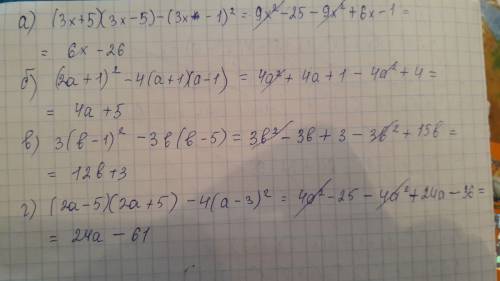 а) (3x+5)(3x-5)-(3x-1)² = 9x²-25-9x²+6x-1 =
= 6x-26
б) (2a+1)²-4(a+1)(a-1) = 4a²+4a+1-4a²+4 =
= 4a+5
в) 3(b-1)²-3b(b-5) = 3b²-3b+3-3b²+15b =
= 12b+3
г) (2a-5)(2a+5)-4(a-3)² = 4a²-25-4a²+24a-36 =
= 24a-61